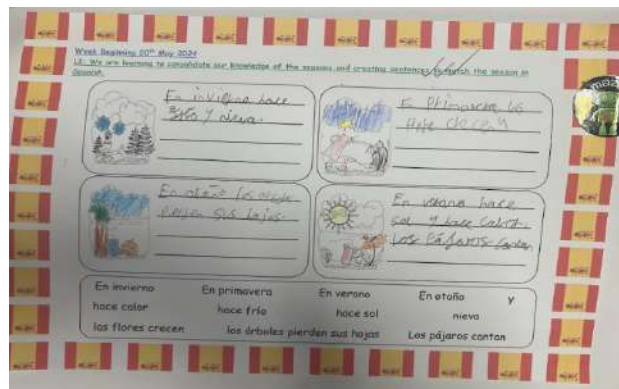 Week Beginning 20th May 2024
LI: We are learning to consolidate our knowledge of the seasons and creating sentences to match the season in
Spanish.
En invierno hace
frío y nieva.
En
En otoño los
sus hojas.
En verano hace
sol y hace calor.
Los pájaros cantan
En invierno
En primavera
En verano
En otoño
y
hace calor
hace frío
hace sol
nieva
las flores crecen
los árboles pierden sus hojas
Los pájaros cantan